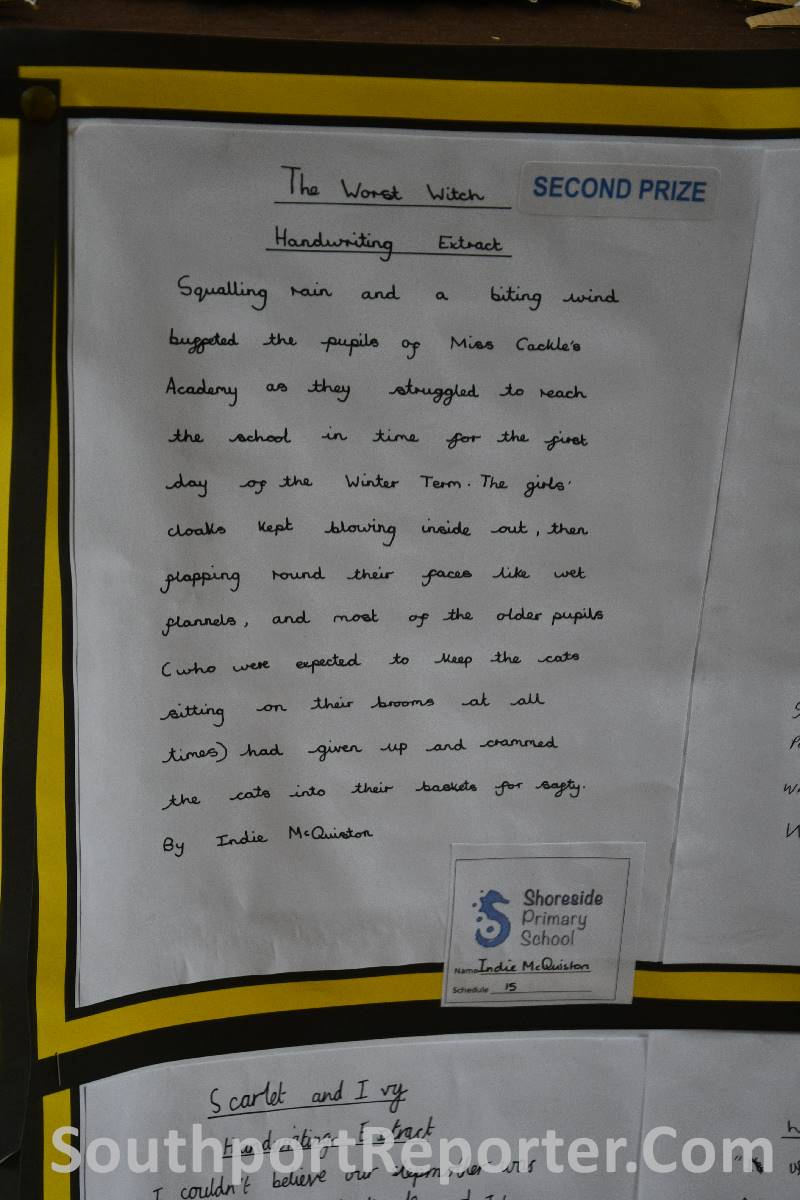 The Worst Witch
SECOND PRIZE
Handwriting Extract
Squalling rain and a biting wind
buffeted the pupils of Miss Cackle's
Academy as they struggled to reach
the school in time for the first
day of the Winter Term. The girls'
cloaks kept blowing inside out, then
flapping round their faces like wet
flannels, and most of the older pupils
(who were expected to keep the cats
sitting on their brooms at all
times) had given up and crammed
the cats into their baskets for safty.
By Indie McQuiston
Shoreside
Primary
School
Name Indie McQuiston
Schedule 15
Scarlet and Ivy
Handwriting Extract
I couldn't believe our
SouthportReporter.Com